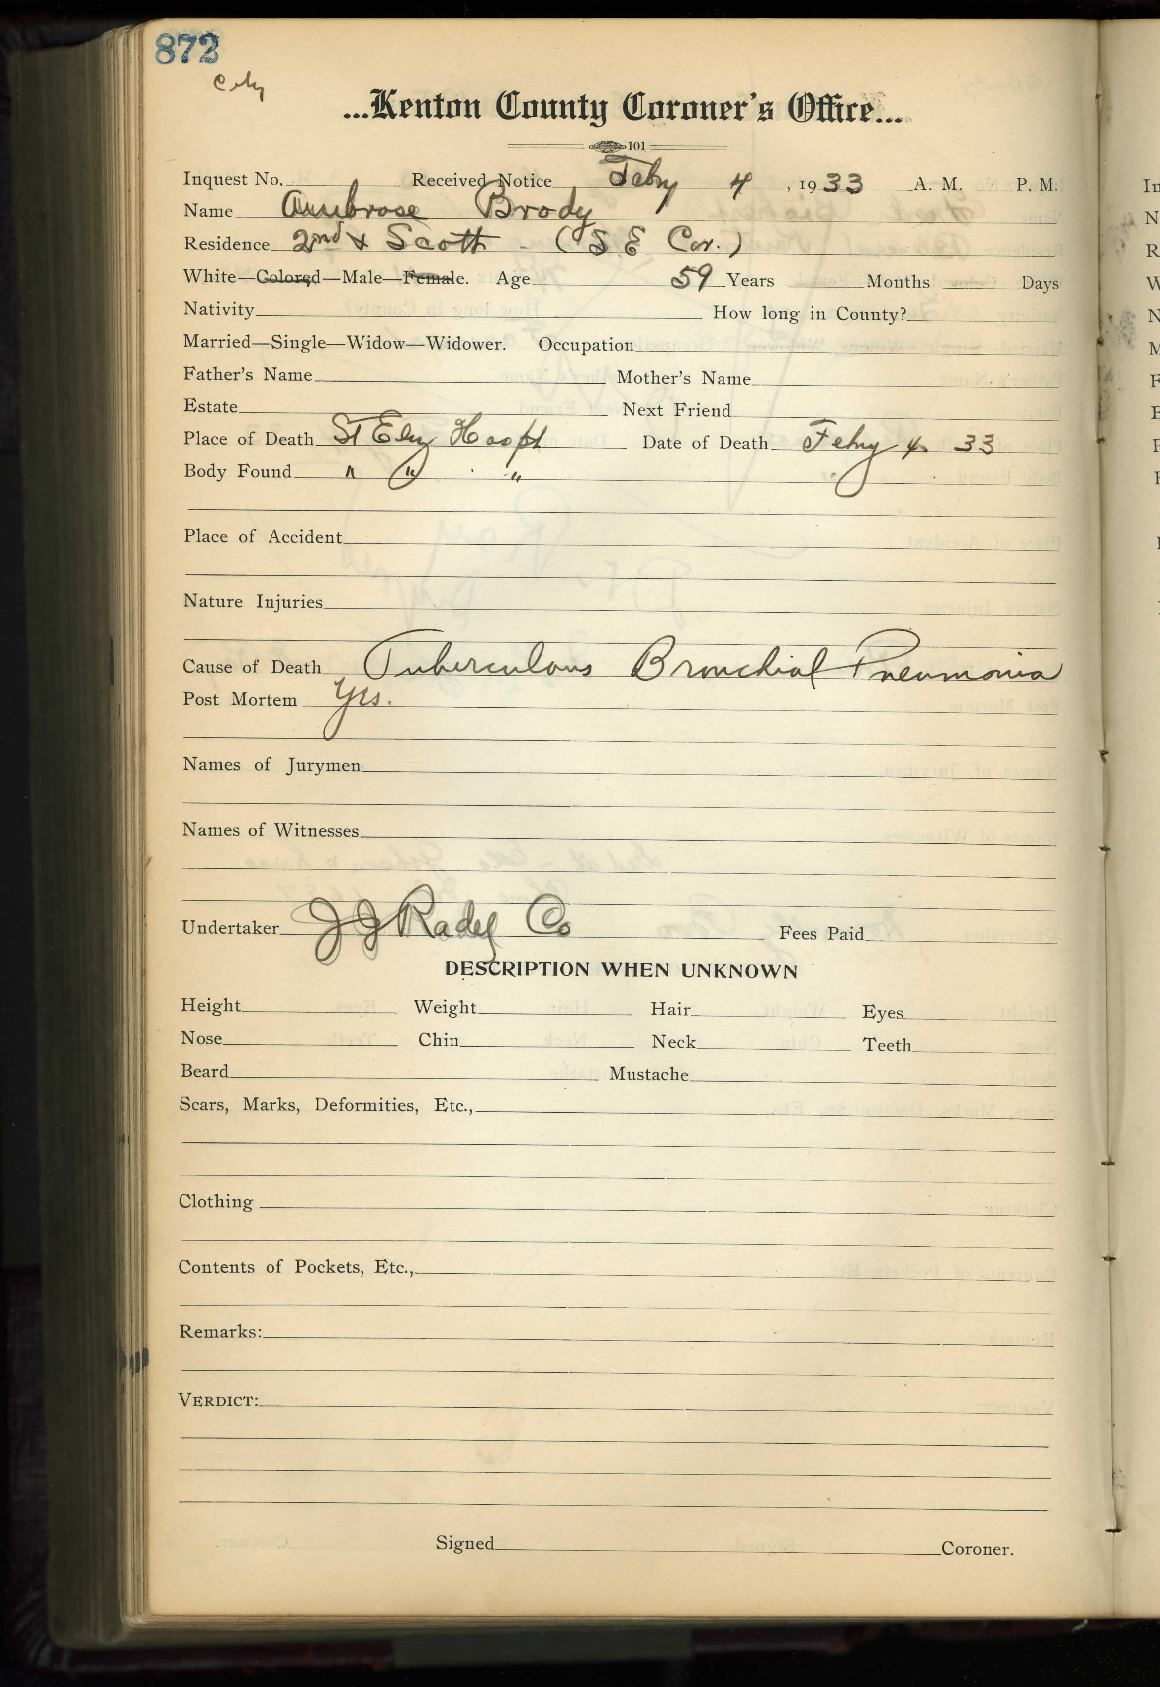 872
City
...Kenton County Coroner's Office...
101
Inquest No. Received Notice Feby 4, 1933 A. M. P. M.
Name Ambrose Brody
Residence 2nd & Scott - (S E Cor.)
White—Colored—Male—Female. Age 59 Years Months Days
Nativity How long in County?
Married—Single—Widow—Widower. Occupation
Father's Name Mother's Name
Estate Next Friend
Place of Death St Eliz Hospt Date of Death Feby 4 33
Body Found " " "
Place of Accident
Nature Injuries
Cause of Death Tuberculous Bronchial Pneumonia
Post Mortem Yes.
Names of Jurymen
Names of Witnesses
Undertaker J J Radel Co Fees Paid
DESCRIPTION WHEN UNKNOWN
Height Weight Hair Eyes
Nose Chin Neck Teeth
Beard Mustache
Scars, Marks, Deformities, Etc.,
Clothing
Contents of Pockets, Etc.,
Remarks:
VERDICT:
Signed Coroner.